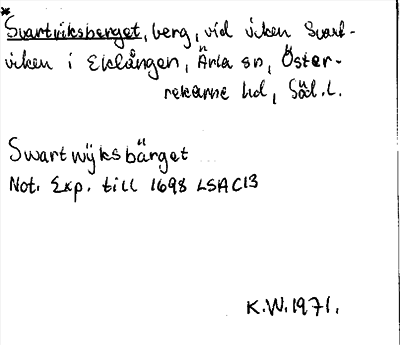 *
Svartviksberget, berg, vid viken Svart-
viken i Eklången, Ärla sn, Öster-
rekarne hd, Söd.l.
Swartwÿksbärget
Not. Exp. till 1698 LSA C13
K.W. 1971.